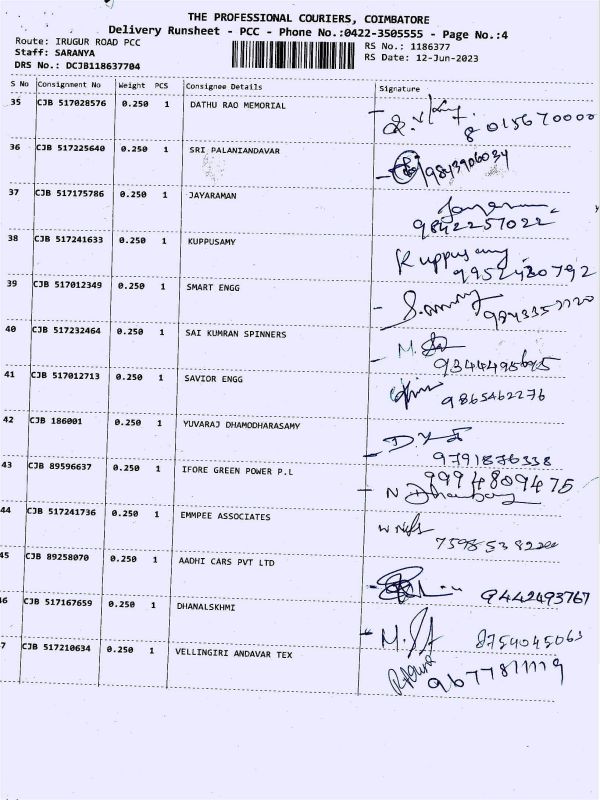 THE PROFESSIONAL COURIERS, COIMBATORE
Delivery Runsheet - PCC - Phone No.:0422-3505555 - Page No.:4
Route: IRUGUR ROAD PCC RS No.: 1186377
Staff: SARANYA RS Date: 12-Jun-2023
DRS No.: DCJB118637704
S No Consignment No Weight PCS Consignee Details Signature
35 CJB 517028576 0.250 1 DATHU RAO MEMORIAL
8015670000
36 CJB 517225640 0.250 1 SRI PALANIANDAVAR
9843906034
37 CJB 517175786 0.250 1 JAYARAMAN
9842257022
38 CJB 517241633 0.250 1 KUPPUSAMY Kuppusamy
9952430792
39 CJB 517012349 0.250 1 SMART ENGG
40 CJB 517232464 0.250 1 SAI KUMRAN SPINNERS M.
41 CJB 517012713 0.250 1 SAVIOR ENGG
9865462276
42 CJB 186001 0.250 1 YUVARAJ DHAMODHARASAMY
9791876338
43 CJB 89596637 0.250 1 IFORE GREEN POWER P.L 9994809475
N
44 CJB 517241736 0.250 1 EMMPEE ASSOCIATES
45 CJB 89258070 0.250 1 AADHI CARS PVT LTD
9442493767
46 CJB 517167659 0.250 1 DHANALSKHMI
M. 8754045063
7 CJB 517210634 0.250 1 VELLINGIRI ANDAVAR TEX
9677811119